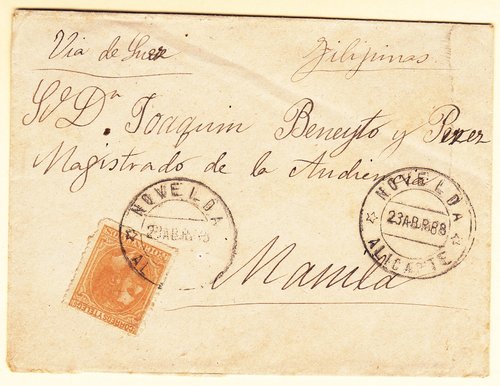 Via de Suez
Filipinas
Sr Dn Joaquim Beneyto y Perez
Magistrado de la Audiencia
Manila
NOVELDA
23ABR88
AL
NOVELDA
23ABR88
ALICANTE
CORREOS Y TELEGS